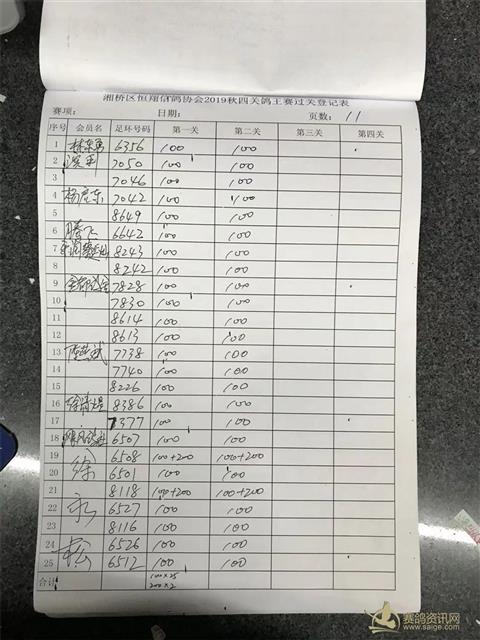 湘桥区恒翔信鸽协会2019秋四关鸽王赛过关登记表
赛项: 日期: 页数: 11
序号 会员名 足环号码 第一关 第二关 第三关 第四关
1 6356 100 100
2 7050 100 100
3 7046 100 100
4 7042 100 100
5 8649 100 100
6 腾飞 6642 100 100
7 8243 100 100
8 8242 100 100
9 7828 100 100
10 7830 100 100
11 8614 100 100
12 8613 100 100
13 7738 100 100
14 7740 100 100
15 8226 100 100
16 8386 100 100
17 7377 100 100
18 6507 100 100
19 徐 6508 100+200 100+200
20 6501 100 100
21 8118 100+200 100+200
22 永 6527 100 100
23 8116 100 100
24 松 6526 100 100
25 6512 100 100
合计 100×25
200×2
赛鸽资讯网
www.saige.com